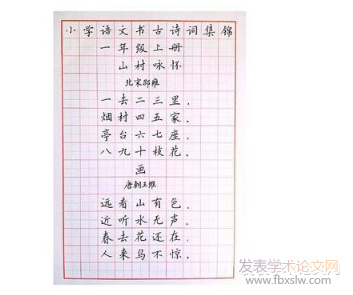 小学语文书古诗词集锦
一年级上册
山村咏怀
北宋邵雍
一去二三里，
烟村四五家。
亭台六七座，
八九十枝花。
画
唐朝王维
远看山有色，
近听水无声。
春去花还在，
人来鸟不惊。
发表学术论文网
www.fbxslw.com